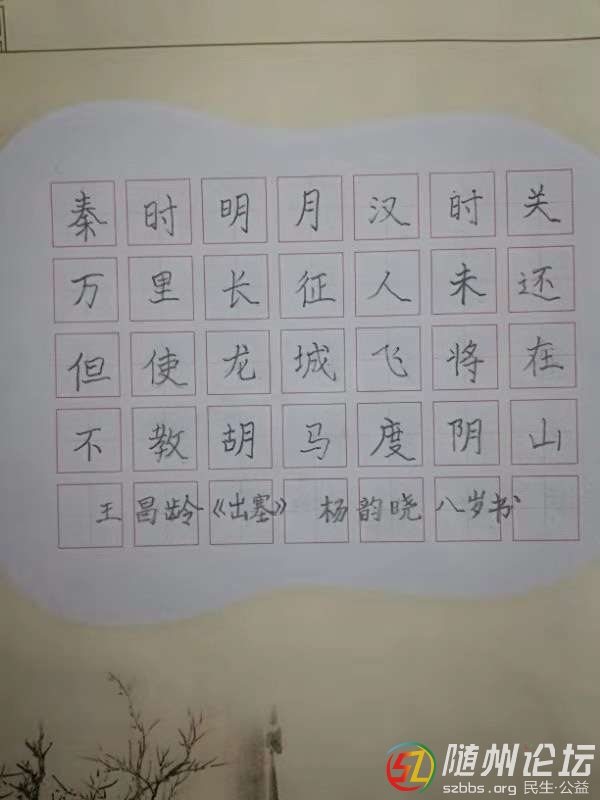 秦时明月汉时关
万里长征人未还
但使龙城飞将在
不教胡马度阴山
王昌龄《出塞》 杨韵晓 八岁书
随州论坛
szbbs.org 民生·公益